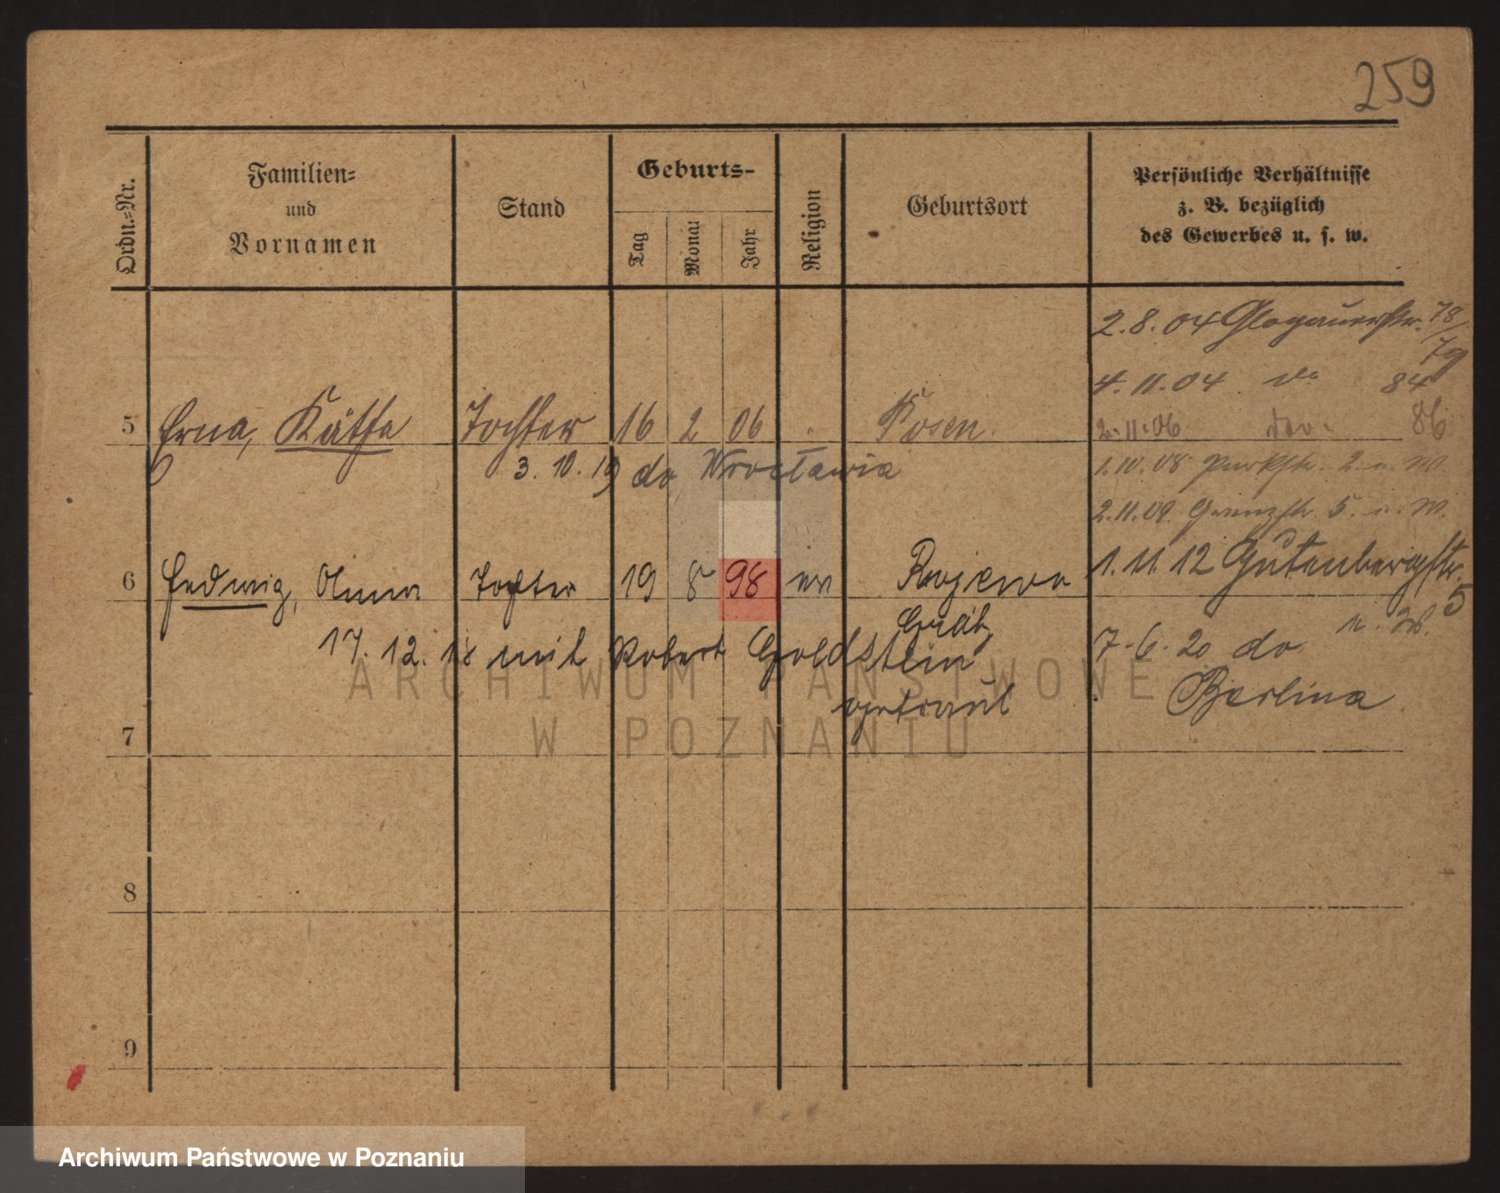 259
Ordn.-Nr.
Familien-
und
Vornamen
Stand
Geburts-
Tag
Monat
Jahr
Religion
Geburtsort
Persönliche Verhältnisse
z. B. bezüglich
des Gewerbes u. s. w.
2.8.04 Glogauerstr. 78/79
4.11.04 do 84
5 Erna, Käthe Tochter 16 2 06 Posen.
2.11.06 86
3.10.19 do Wrocławia
1.10.08 Parkstr. 2. u. W.
2.11.09. Grenzstr. 5. u. W.
6 Hedwig, Anna Tochter 19 8 98 ev Rojewo
1.11.12 Gutenbergstr. 5
Grätz
u. W.
17.12.18 mit Robert Goldstein
getraut
7.6.20 do
Berlina
7
8
9
ARCHIWUM PAŃSTWOWE
W POZNANIU
Archiwum Państwowe w Poznaniu